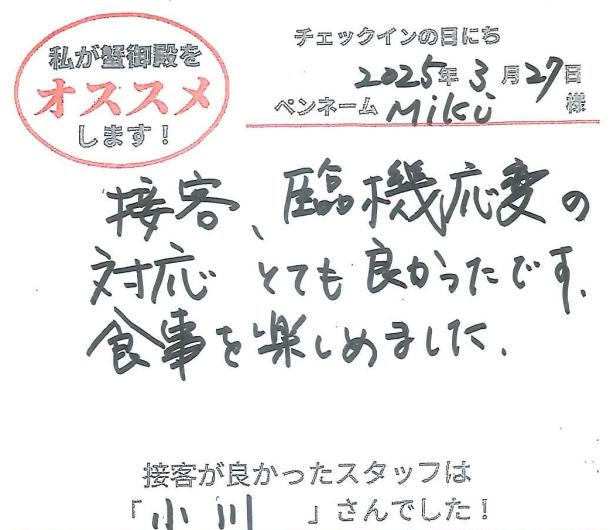 私が蟹御殿を
オススメ
します!
チェックインの日にち
2025年3月27日
ペンネーム Miki 様
接客、臨機応変の
対応 とても良かったです.
食事を楽しめました.
接客が良かったスタッフは
「小川」さんでした!